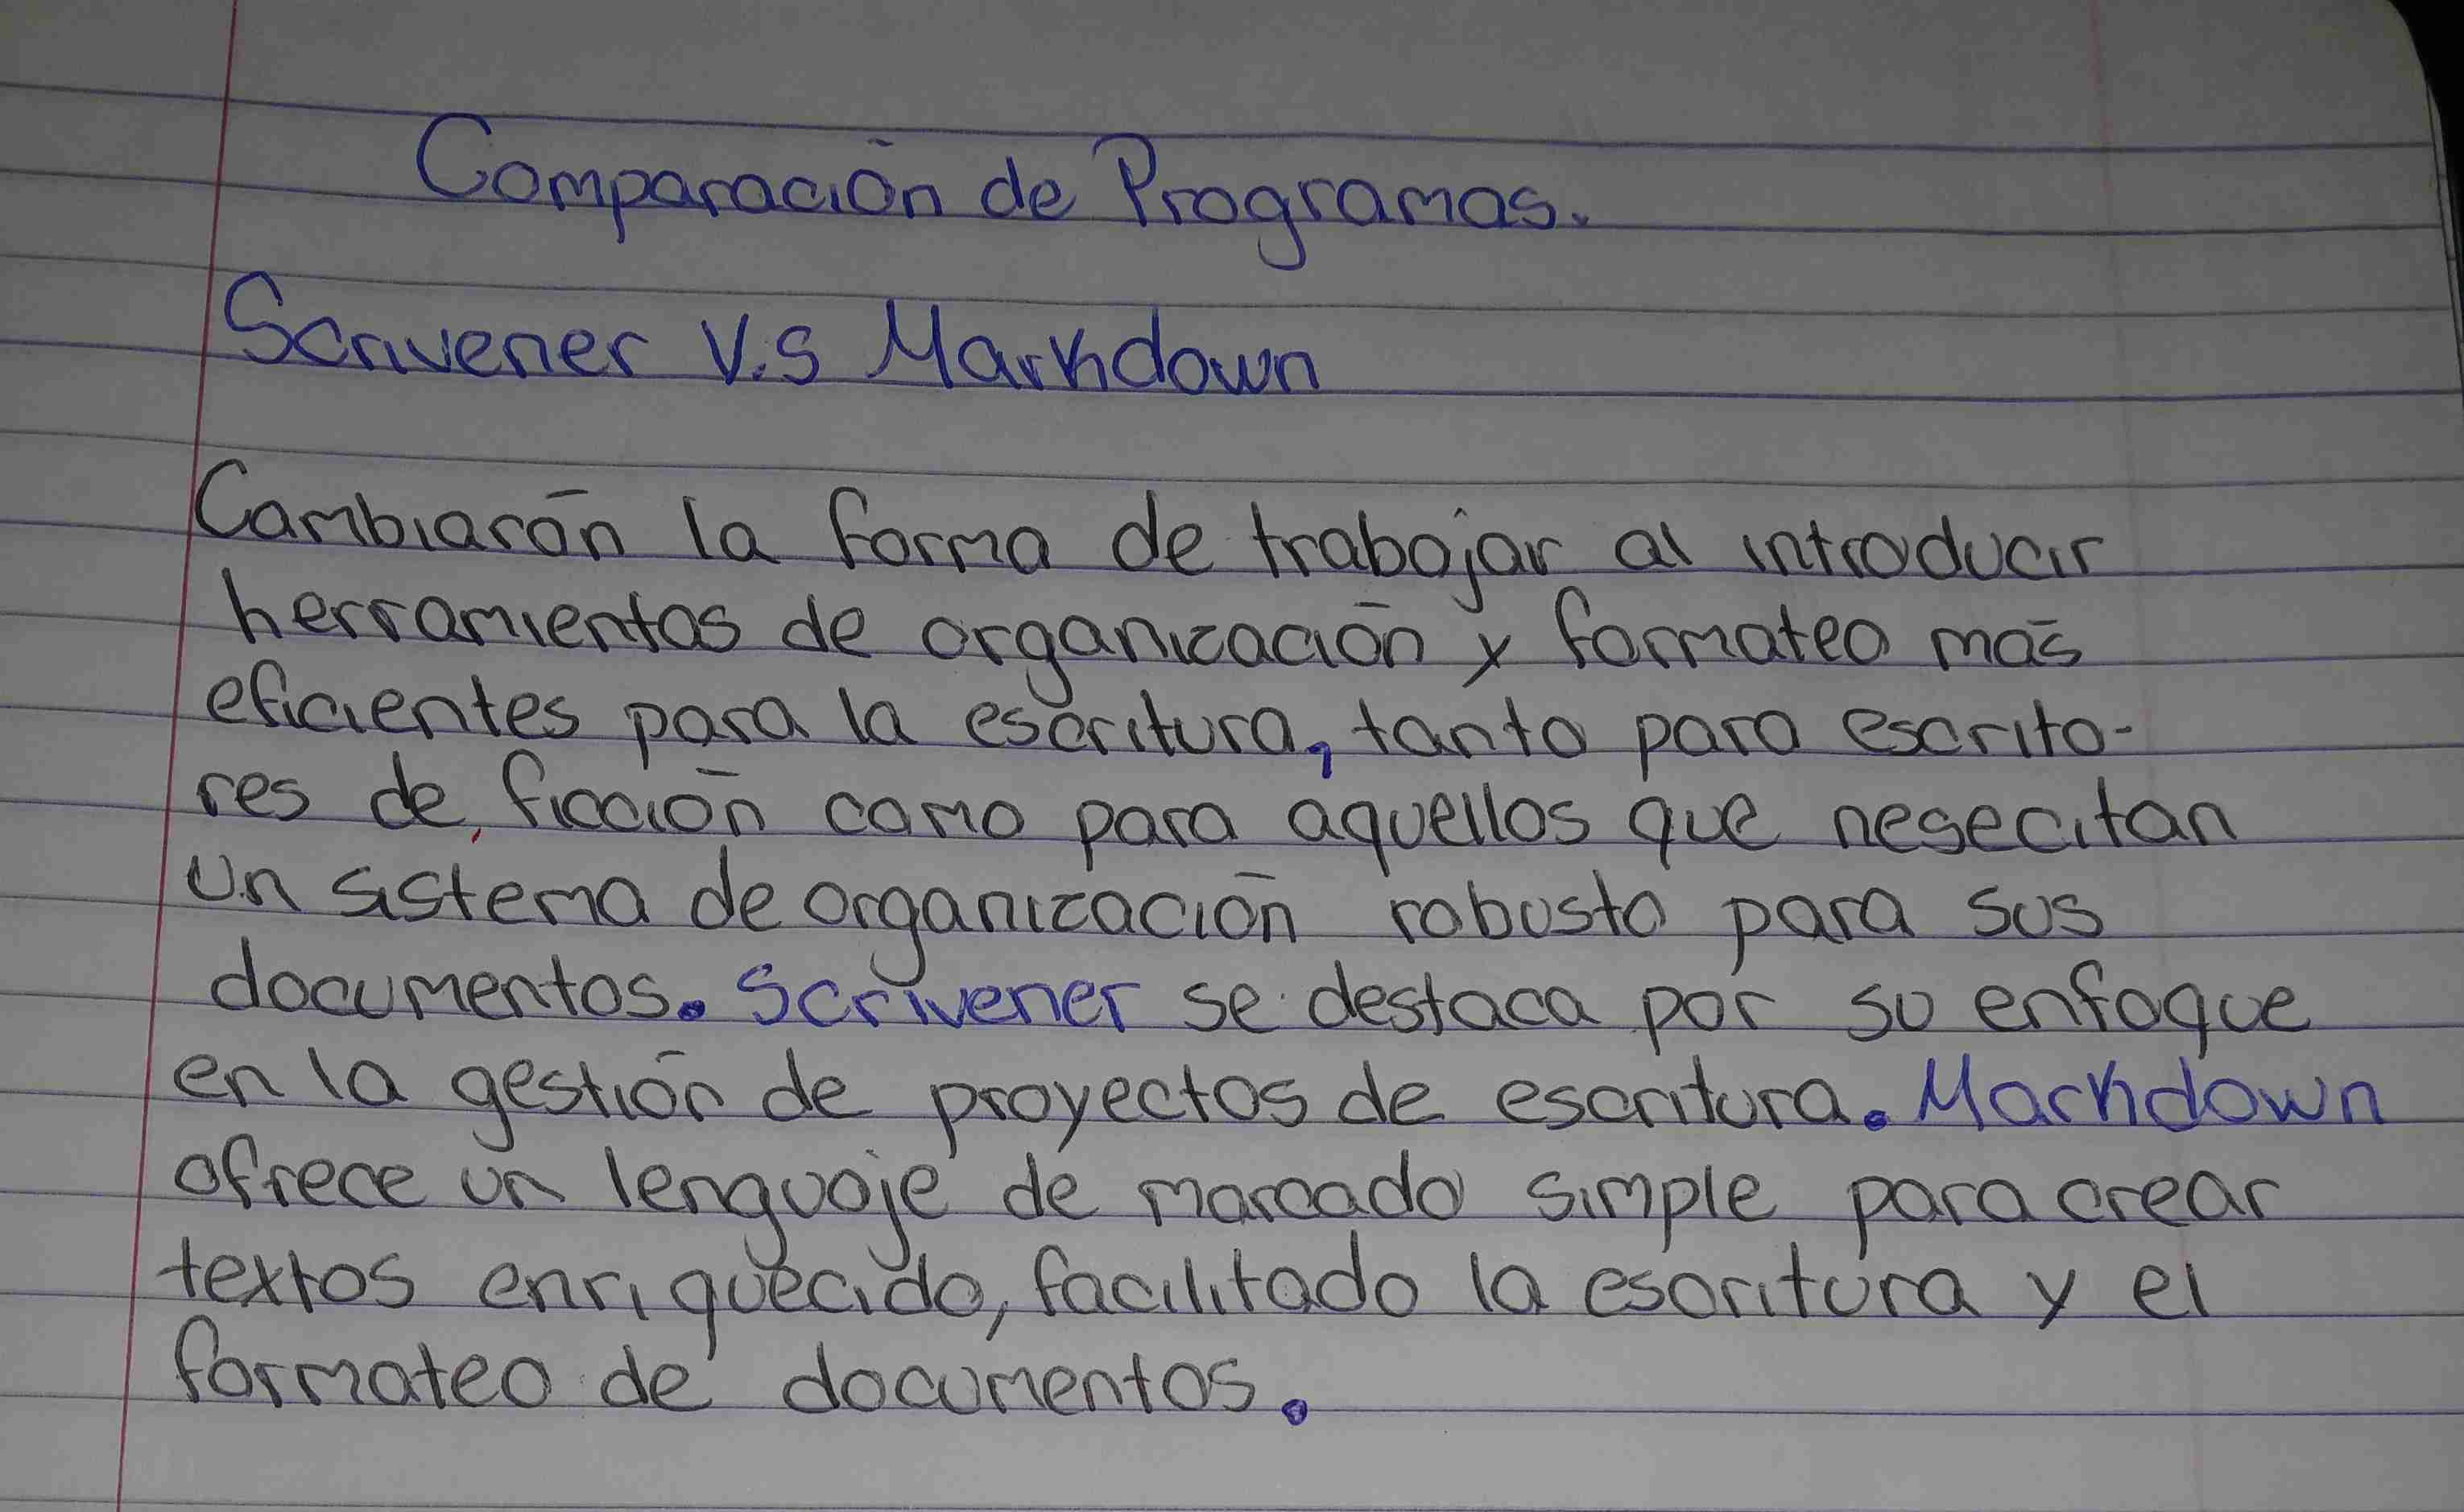 Comparación de Programas.
Scrivener V.S Markdown
Cambiarón la forma de trabajar al introducir
herramientas de organización y formateo más
eficientes para la escritura, tanto para escrito-
res de ficción como para aquellos que nesecitan
un sistema de organización robusto para sus
documentos. Scrivener se destaca por su enfoque
en la gestión de proyectos de escritura. Markdown
ofrece un lenguaje de marcado simple para crear
textos enriquecido, facilitado la escritura y el
formateo de documentos.